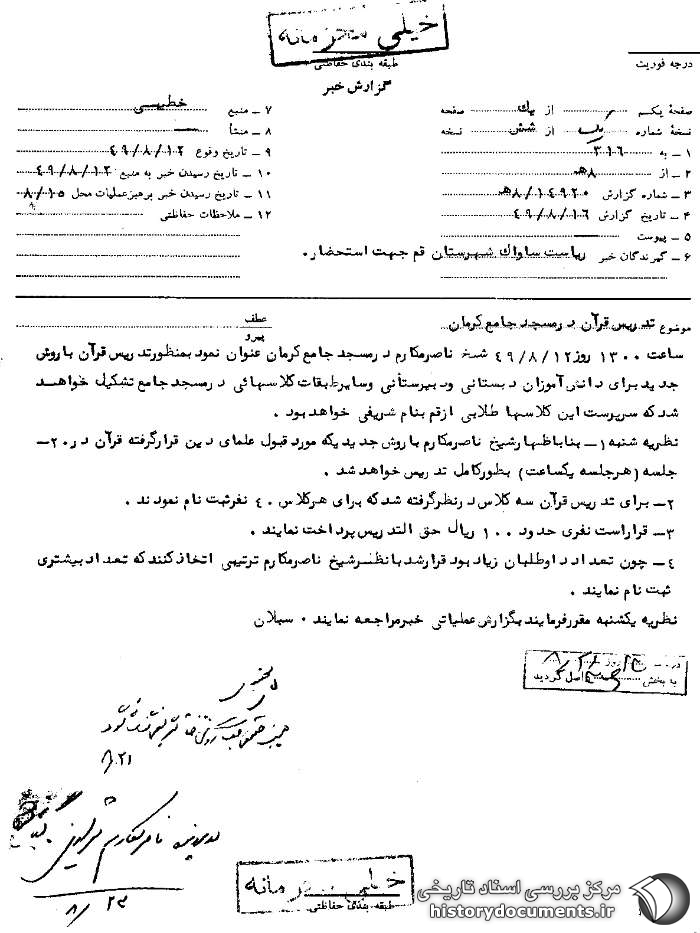 خیلی محرمانه
طبقه بندی حفاظتی
درجه فوریت
گزارش خبر
صفحهٔ یکم از یک صفحه
نسخهٔ شماره یک از شش نسخه
۱ ـ به ۳۱۶
۲ ـ از ۸ هـ
۳ ـ شماره گزارش ۸/۱۴۹۲۰ هـ
۴ ـ تاریخ گزارش ۴۹/۸/۱۶
۵ ـ پیوست
۶ ـ گیرندگان خبر ریاست ساواک شهرستان قم جهت استحضار.
۷ ـ منبع خطیبی
۸ ـ منشأ
۹ ـ تاریخ وقوع ۴۹/۸/۱۲
۱۰ ـ تاریخ رسیدن خبر به منبع ۴۹/۸/۱۲
۱۱ ـ تاریخ رسیدن خبر برهبر عملیات محل ۸/۱۵
۱۲ ـ ملاحظات حفاظتی
موضوع تدریس قرآن در مسجد جامع کرمان
عطف
پیرو
ساعت ۱۳۰۰ روز ۴۹/۸/۱۲ شیخ ناصر مکارم در مسجد جامع کرمان عنوان نمود بمنظور تدریس قرآن با روش
جدید برای دانش آموزان دبستانی و دبیرستانی و سایر طبقات کلاسهائی در مسجد جامع تشکیل خواهد
شد که سرپرست این کلاسها طلابی از قم بنام شریفی خواهد بود .
نظریه شنبه ۱ـ بنا باظهار شیخ ناصر مکارم با روش جدیدیکه مورد قبول علمای دین قرار گرفته قرآن در ۲۰ـ
جلسه (هر جلسه یکساعت) بطور کامل تدریس خواهد شد .
۲ـ برای تدریس قرآن سه کلاس در نظر گرفته شد که برای هر کلاس ۴۰ نفر ثبت نام نمودند .
۳ـ قرار است نفری حدود ۱۰۰ ریال حق التدریس پرداخت نمایند .
۴ـ چون تعداد داوطلبان زیاد بود قرار شد با نظر شیخ ناصر مکارم ترتیبی اتخاذ کنند که تعداد بیشتری
ثبت نام نمایند .
نظریه یکشنبه مقرر فرمایند بگزارش عملیاتی خبر مراجعه نمایند . سبلان
روز
به بخش واصل گردید
۸/۲۱
ناصر مکارم شیرازی
۸/۲۳
خیلی محرمانه
طبقه بندی حفاظتی
مرکز بررسی اسناد تاریخی
historydocuments.ir